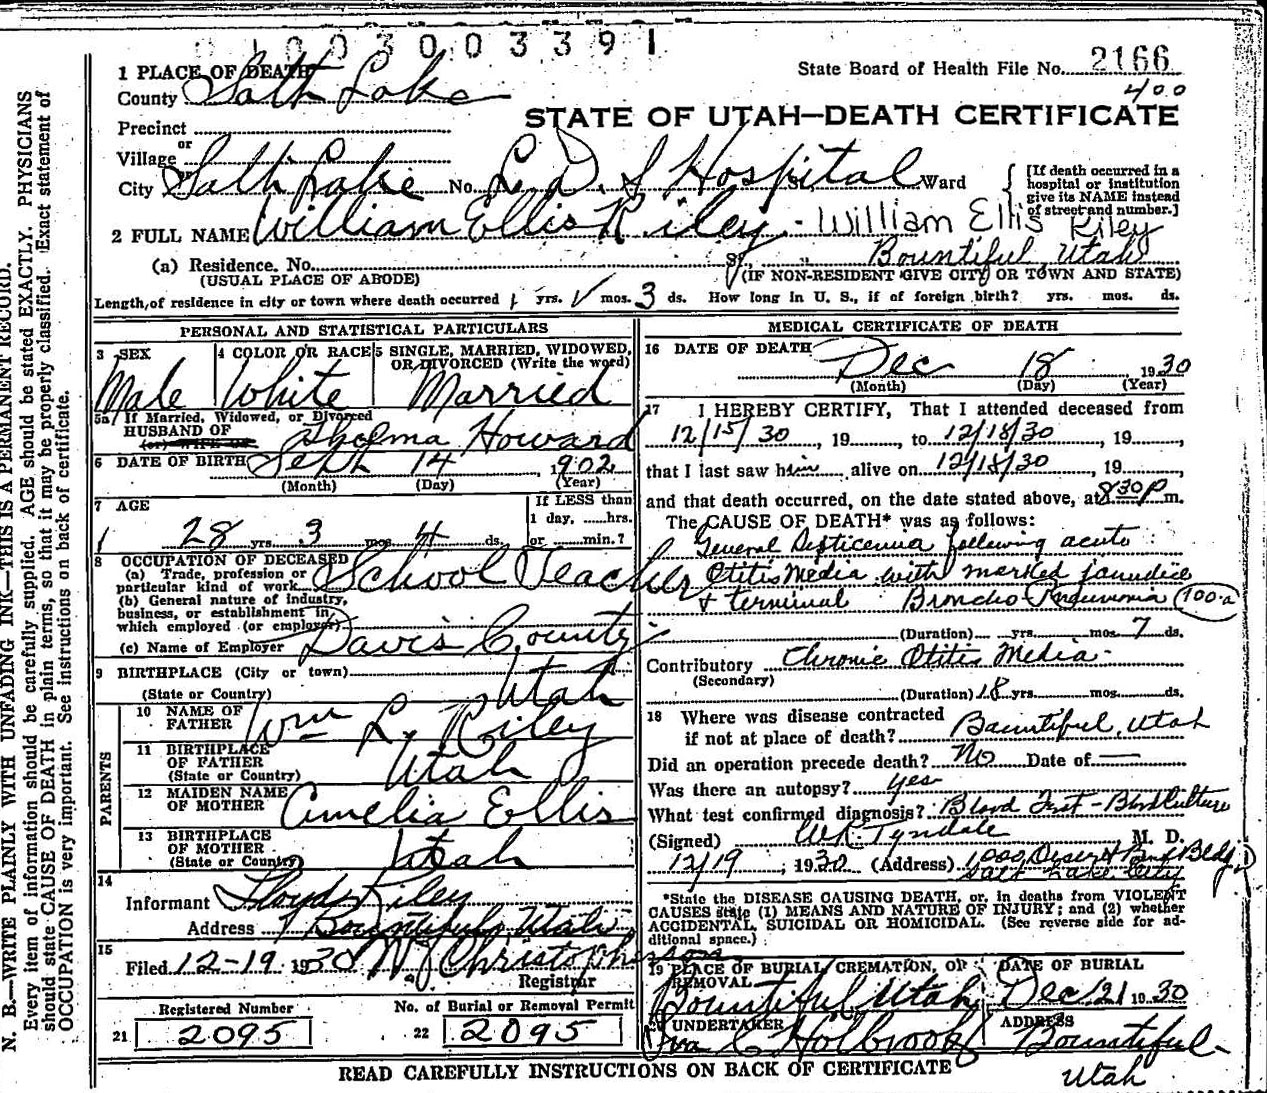 01003003391
State Board of Health File No. 2166
400
1 PLACE OF DEATH
County Salt Lake
STATE OF UTAH—DEATH CERTIFICATE
Precinct
or
Village
or
City Salt Lake No. L. D. S Hospital St. Ward
[If death occurred in a hospital or institution give its NAME instead of street and number.]
2 FULL NAME William Ellis Riley - William Ellis Riley
(a) Residence. No. St. Bountiful, Utah
(USUAL PLACE OF ABODE) (IF NON-RESIDENT GIVE CITY OR TOWN AND STATE)
Length of residence in city or town where death occurred yrs. mos. 3 ds. How long in U. S., if of foreign birth? yrs. mos. ds.
PERSONAL AND STATISTICAL PARTICULARS
3 SEX 4 COLOR OR RACE 5 SINGLE, MARRIED, WIDOWED, OR DIVORCED (Write the word)
Male White Married
5a If Married, Widowed, or Divorced
HUSBAND OF
(or) WIFE OF Thelma Howard
6 DATE OF BIRTH Sept 14, 1902
(Month) (Day) (Year)
7 AGE If LESS than
1 day, hrs.
28 yrs. 3 mos. 4 ds. or min.?
8 OCCUPATION OF DECEASED
(a) Trade, profession or
particular kind of work School Teacher
(b) General nature of industry,
business, or establishment in
which employed (or employer)
(c) Name of Employer Davis County
9 BIRTHPLACE (City or town)
(State or Country) Utah
PARENTS
10 NAME OF
FATHER Wm L. Riley
11 BIRTHPLACE
OF FATHER
(State or Country) Utah
12 MAIDEN NAME
OF MOTHER Amelia Ellis
13 BIRTHPLACE
OF MOTHER
(State or Country) Utah
14
Informant Lloyd Riley
Address Bountiful, Utah
15
Filed 12-19 1930 W J Christophersson
Registrar
Registered Number No. of Burial or Removal Permit
21 2095 22 2095
MEDICAL CERTIFICATE OF DEATH
16 DATE OF DEATH Dec 18, 1930
(Month) (Day) (Year)
17 I HEREBY CERTIFY, That I attended deceased from
12/15/30, 19, to 12/18/30, 19,
that I last saw him alive on 12/18/30, 19,
and that death occurred, on the date stated above, at 830P m.
The CAUSE OF DEATH* was as follows:
General Septicemia following acute
Otitis Media with marked jaundice
& terminal Broncho Pneumonia 100-a
(Duration) yrs. mos. 7 ds.
Contributory Chronic Otitis Media
(Secondary)
(Duration) 18 yrs. mos. ds.
18 Where was disease contracted
if not at place of death? Bountiful, Utah
Did an operation precede death? No Date of —
Was there an autopsy? yes
What test confirmed diagnosis? Blood Test - Blood Culture
(Signed) WR Tyndale M. D.
12/19, 1930 (Address) 1000 Deseret Bank Bldg
Salt Lake City
*State the DISEASE CAUSING DEATH, or, in deaths from VIOLENT
CAUSES state (1) MEANS AND NATURE OF INJURY; and (2) whether
ACCIDENTAL, SUICIDAL OR HOMICIDAL. (See reverse side for ad-
ditional space.)
19 PLACE OF BURIAL, CREMATION, OR REMOVAL DATE OF BURIAL
Bountiful Utah Dec 21 1930
20 UNDERTAKER ADDRESS
Iva C Holbrook Bountiful
Utah
READ CAREFULLY INSTRUCTIONS ON BACK OF CERTIFICATE
N. B.—WRITE PLAINLY WITH UNFADING INK—THIS IS A PERMANENT RECORD.
Every item of information should be carefully supplied. AGE should be stated EXACTLY. PHYSICIANS
should state CAUSE OF DEATH in plain terms, so that it may be properly classified. Exact statement of
OCCUPATION is very important. See instructions on back of certificate.